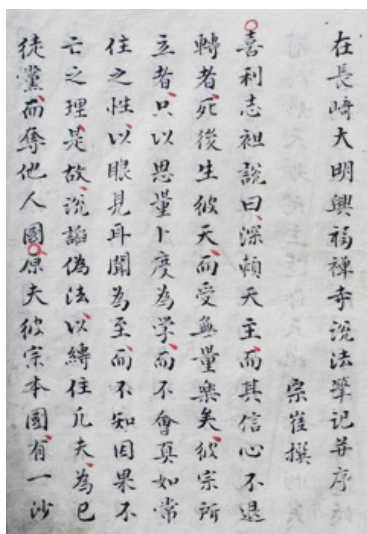 在長崎大明興福禅寺說法筆記并序
宗崔撰
喜利志祖說曰深頼天主而其信心不退
轉者死後生彼天而受無量樂矣彼宗所
立者只以思量卜度為学而不會真如常
住之性以眼見耳聞為至而不知因果不
亡之理是故說諂偽法以縛住凢夫為已
徒黨而奪他人國原夫彼宗本國有一沙